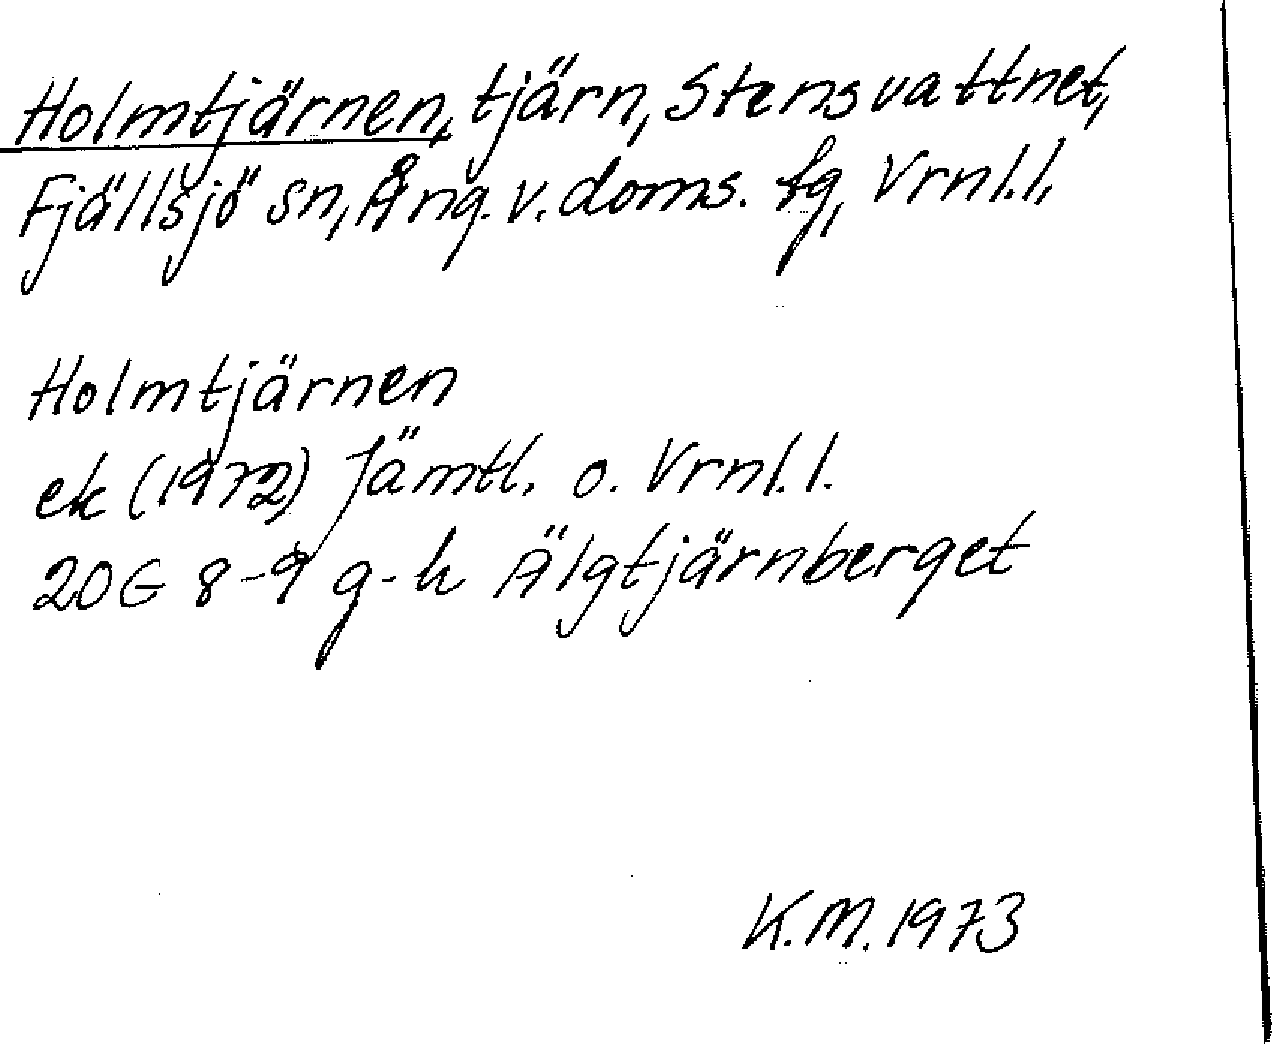 Holmtjärnen, tjärn, Stensvattnet,
Fjällsjö sn, Ång. v. doms. fg, Vrnl. l.
Holmtjärnen
ek (1972) Jämtl. o. Vrnl. l.
20G 8-9 g-h Älgtjärnberget
K.M. 1973